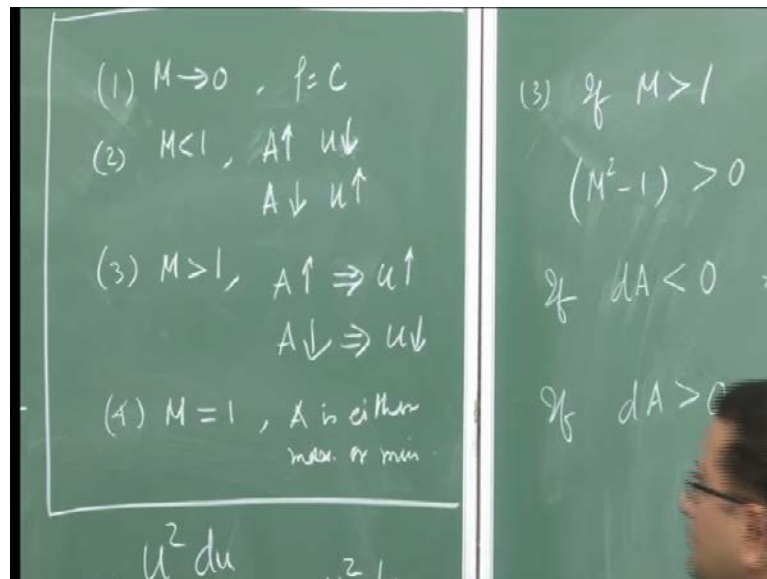 (1) M→0 , ρ=C
(2) M<1, A↑ u↓
A↓ u↑
(3) M>1, A↑ ⇒ u↑
A↓ ⇒ u↓
(4) M=1, A is either
max. or min.
u² du
(3) If M>1
(M²-1) >0
If dA<0
If dA>0